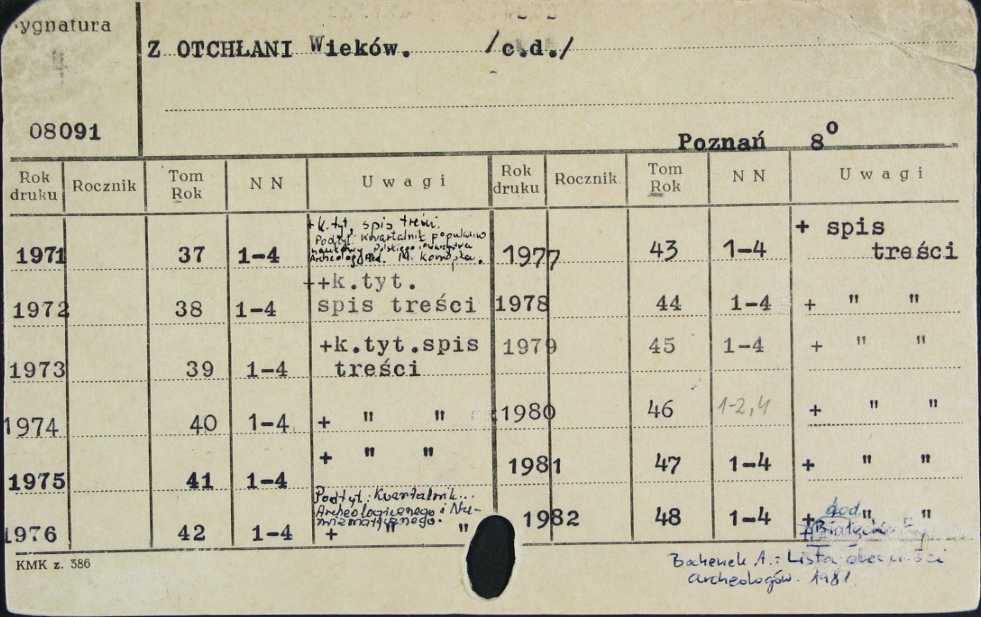 Sygnatura
Z OTCHŁANI Wieków. /c.d./
08091
Poznań 8o
Rok druku Rocznik Tom Rok N N U w a g i Rok druku Rocznik Tom Rok N N U w a g i
1971 37 1-4 +k.tyt, spis treści.
Podtyt: kwartalnik popularno
naukowy Polskiego
Archeolog. M.
1977 43 1-4 + spis
treści
1972 38 1-4 ++k.tyt.
spis treści
1978 44 1-4 + " "
1973 39 1-4 +k.tyt.spis
treści
1979 45 1-4 + " "
1974 40 1-4 + " "
1980 46 1-2,4 + " "
1975 41 1-4 + " "
1981 47 1-4 + " "
1976 42 1-4 Podtyt: Kwartalnik...
Archeologicznego i Nu-
mizmatycznego.
+ "
1982 48 1-4 + " "
dod.
KMK z. 386
A.: Lista obecności
archeologów. 1981